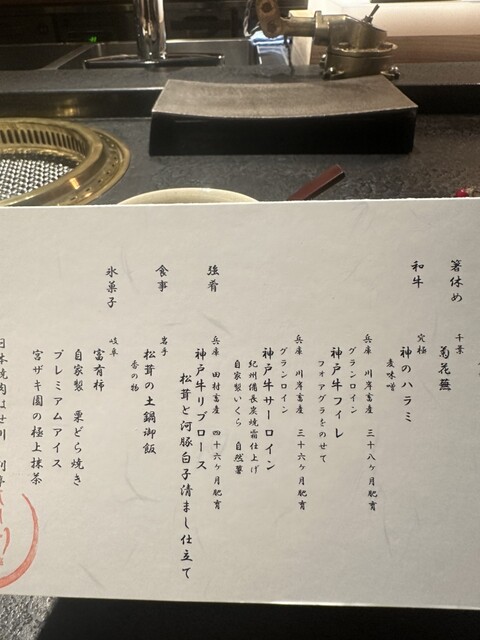 箸休め
千葉
菊花蕪
和牛
究極
神のハラミ
麦味噌
兵庫 川岸畜産 三十八ヶ月肥育
グランロイン
神戸牛フィレ
フォアグラをのせて
兵庫 川岸畜産 三十六ヶ月肥育
グランロイン
神戸牛サーロイン
紀州備長炭焼霜仕上げ
自家製いくら 自然薯
強肴
兵庫 田村畜産 四十六ヶ月肥育
神戸牛リブロース
松茸と河豚白子清まし仕立て
食事
岩手
松茸の土鍋御飯
香の物
氷菓子
岐阜
富有柿
自家製 栗どら焼き
プレミアムアイス
宮ザキ園の極上抹茶
日本焼肉はせ川